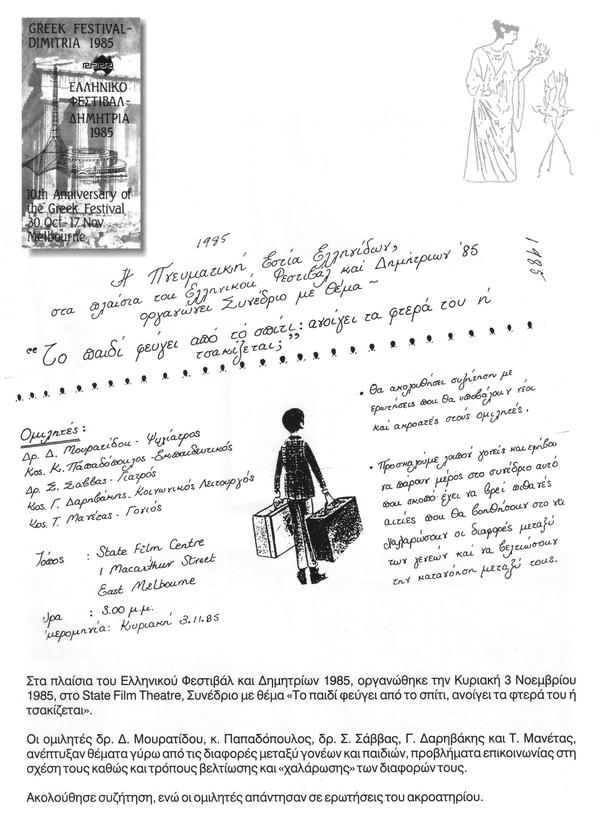 GREEK FESTIVAL-
DIMITRIA 1985
ΕΛΛΗΝΙΚΟ
ΦΕΣΤΙΒΑΛ-
ΔΗΜΗΤΡΙΑ
1985
10th Anniversary of
the Greek Festival
30 Oct-17 Nov
Melbourne
1985
1985
Η Πνευματική Εστία Ελληνίδων,
στα πλαίσια του Ελληνικού Φεστιβάλ και Δημητρίων '85
οργανώνει Συνέδριο με θέμα ~
"Το παιδί φεύγει από το σπίτι: ανοίγει τα φτερά του ή
τσακίζεται;"
Ομιλητές:
Δρ. Δ. Μουρατίδου - Ψυχίατρος
Κος. Κ. Παπαδόπουλος - Εκπαιδευτικός
Δρ. Σ. Σάββας - Γιατρός
Κος Γ. Δαρηβάκης - Κοινωνικός Λειτουργός
Κος Τ. Μανέτας - Γονιός
Τόπος : State Film Centre
1 Macarthur Street
East Melbourne
Ώρα : 3.00 μ.μ.
Ημερομηνία: Κυριακή 3.11.85
• Θα ακολουθήσει συζήτηση με
ερωτήσεις που θα υποβάλουν νέοι
και ακροατές στους ομιλητές.
• Προσκαλούμε λοιπόν γονείς και εφήβους
να πάρουν μέρος στο συνέδριο αυτό
που σκοπό έχει να βρεί πιθανές
αιτίες που θα βοηθήσουν στο να
χαλαρώσουν οι διαφορές μεταξύ
των γενεών και να βελτιώσουν
την κατανόηση μεταξύ τους.
Στα πλαίσια του Ελληνικού Φεστιβάλ και Δημητρίων 1985, οργανώθηκε την Κυριακή 3 Νοεμβρίου
1985, στο State Film Theatre, Συνέδριο με θέμα «Το παιδί φεύγει από το σπίτι, ανοίγει τα φτερά του ή
τσακίζεται».
Οι ομιλητές δρ. Δ. Μουρατίδου, κ. Παπαδόπουλος, δρ. Σ. Σάββας, Γ. Δαρηβάκης και Τ. Μανέτας,
ανέπτυξαν θέματα γύρω από τις διαφορές μεταξύ γονέων και παιδιών, προβλήματα επικοινωνίας στη
σχέση τους καθώς και τρόπους βελτίωσης και «χαλάρωσης» των διαφορών τους.
Ακολούθησε συζήτηση, ενώ οι ομιλητές απάντησαν σε ερωτήσεις του ακροατηρίου.